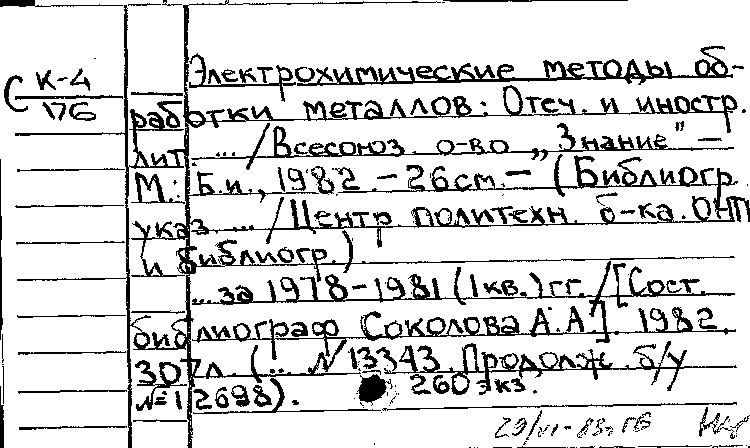 С К-4
176
Электрохимические методы об-
работки металлов: Отеч. и иностр.
лит. ... / Всесоюз. о-во „Знание" –
М.: Б.и., 1982. – 26 см. – (Библиогр.
указ. ... / Центр. политехн. б-ка. ОНТП
и библиогр.).
... за 1978-1981 (1 кв.) гг. / [Сост.
библиограф Соколова А.А.]. 1982.
307 л. (... № 13343. Продолж. б/у
№ 12698). 260 экз.